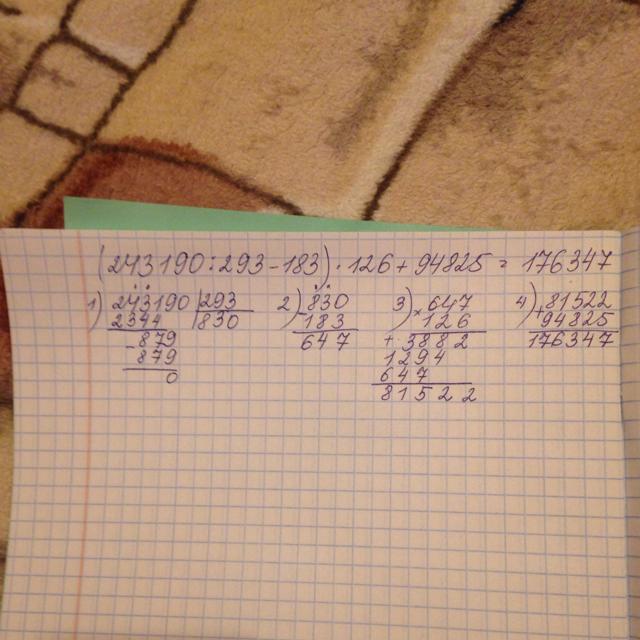 (243190:293-183)·126+94825=176347
1) 243190 | 293
2344 | 830
-879
879
0
2) -830
183
647
3) ×647
126
+3882
1294
647
81522
4) +81522
94825
176347